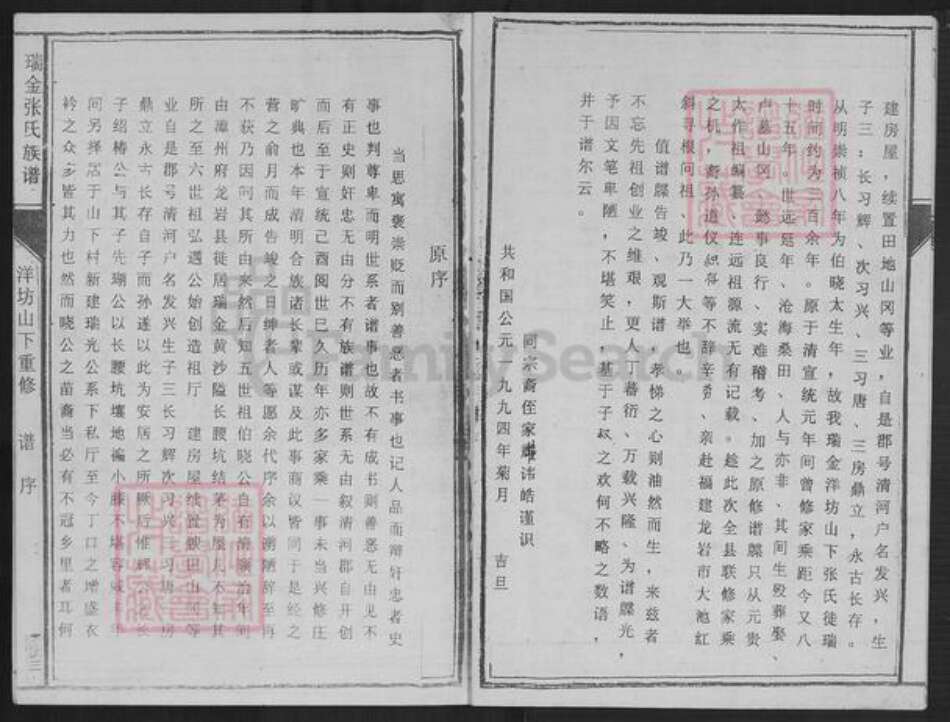 建房屋，续置田地山冈等业，自是郡号清河户名发兴，生
子三：长习辉、次习兴、三习唐、三房鼎立，永古长存。
从明崇祯八年为伯晓太生年，故我瑞金洋坊山下张氏徒瑞
时间约为三百余年。原于清宣统元年间曾修家乘距今又八
十五年，世远延年、沧海桑田、人与亦非、其间生殁葬娶、
卢墓山冈、懿事良行、实难稽考、加之原修谱牒只从元贵
太作祖编纂、连远祖源流无有记载。趁此次全县联修家乘
之机，裔孙道仪 等不辞辛劳、亲赴福建龙岩市大池红
斜寻根问祖、此乃一大举也。
值谱牒告竣、观斯谱、孝悌之心则油然而生，来兹者
不忘先祖创业之维艰，更人丁蕃衍、万载兴隆、为谱牒光，
予因文笔卑陋，不堪笑止，基于子叔之欢何不略之数语，
并于谱尔云。
同宗裔侄家 讳皓谨识
共和国公元一九九四年菊月 吉旦
原序
当思寓褒崇贬而别善恶者书事也记人品而辩奸忠者史
事也判尊卑而明世系者谱事也故不有成书则善恶无由见不
有正史则奸忠无由分不有族谱则世系无由叙清河郡自开创
而后至于宣统己酉阅世已久历年亦多家乘一事未当兴修庄
旷典也本年清明合族诸长辈或谋及此事商议皆同于是经之
营之俞月而成告竣之日绅者人等愿余代序余以谫陋辞至再
不获乃因问其所由来然后知五世祖伯晓公自有清顺治年间
由漳州府龙岩县徙居瑞金黄沙隘长腰坑结茅为屋 不知其
所之至六世祖弘遇公始创造祖厅 建房屋续置 田山 等
业自是郡号清河户名发兴生子三长习解次习兴三习唐 房
鼎立永古长存自子而孙遂以此为安居之所厥后惟辉公 长
子绍椿公与其子先瑚公以长腰坑壤地褊小膝不堪容 年
间另择居于山下村新建瑞光公系下私厅至今丁口之增盛衣
衿之众多皆其力也然而晓公之苗裔当必有不冠乡里者耳何
瑞金张氏族谱
洋坊山下重修
谱序
FamilySearch